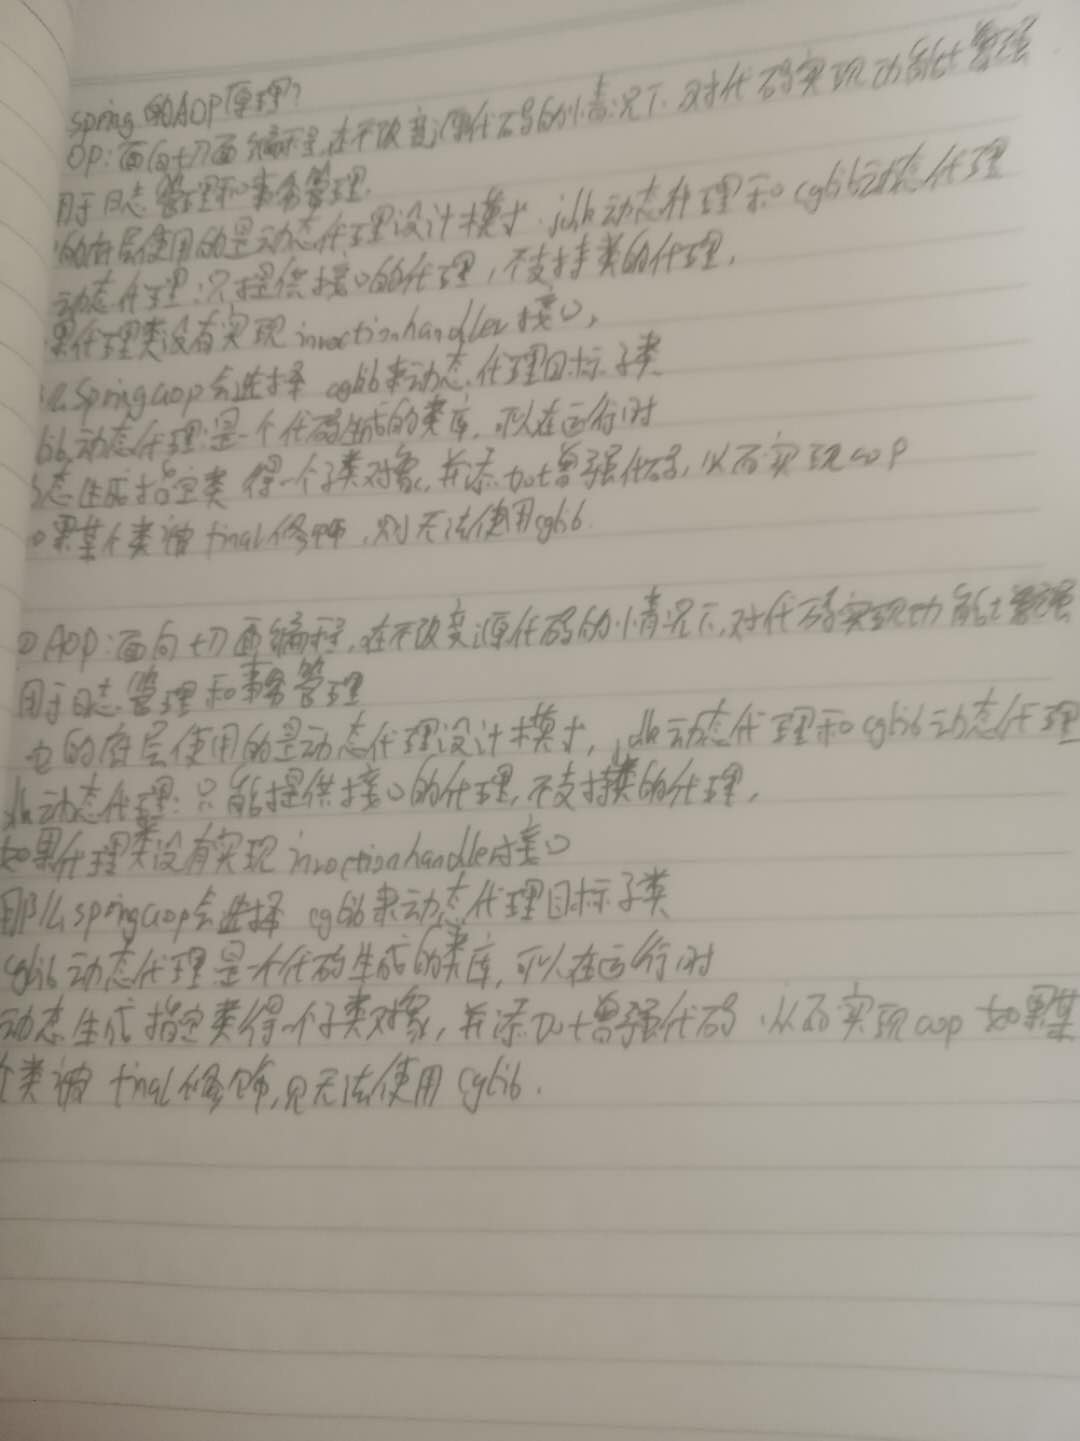 spring的AOP原理?
OP:面向切面编程,在不改变源代码的情况下,对代码实现功能增强
用于日志管理和事务管理.
的底层使用的是动态代理设计模式.jdk动态代理和cglib动态代理
动态代理:只提供接口的代理,不支持类的代理,
果代理类没有实现invoctionhandler接口,
么Springaop会选择 cglib来动态代理目标子类
lib动态代理是一个代码生成的类库,可以在运行时
态生成指定类得一个子类对象,并添加增强代码,从而实现aop
果某个类被final修饰,则无法使用cglib.
②AOP:面向切面编程,在不改变源代码的情况下,对代码实现功能增强
用于日志管理和事务管理
它的底层使用的是动态代理设计模式,jdk动态代理和cglib动态代理
jdk动态代理:只能提供接口的代理,不支持类的代理,
如果代理类没有实现invoctionhandler接口
那么springaop会选择 cglib来动态代理目标子类
cglib动态代理是一个代码生成的类库,可以在运行时
动态生成指定类得一个子类对象,并添加增强代码,从而实现aop如果某
个类被 final修饰,则无法使用cglib.